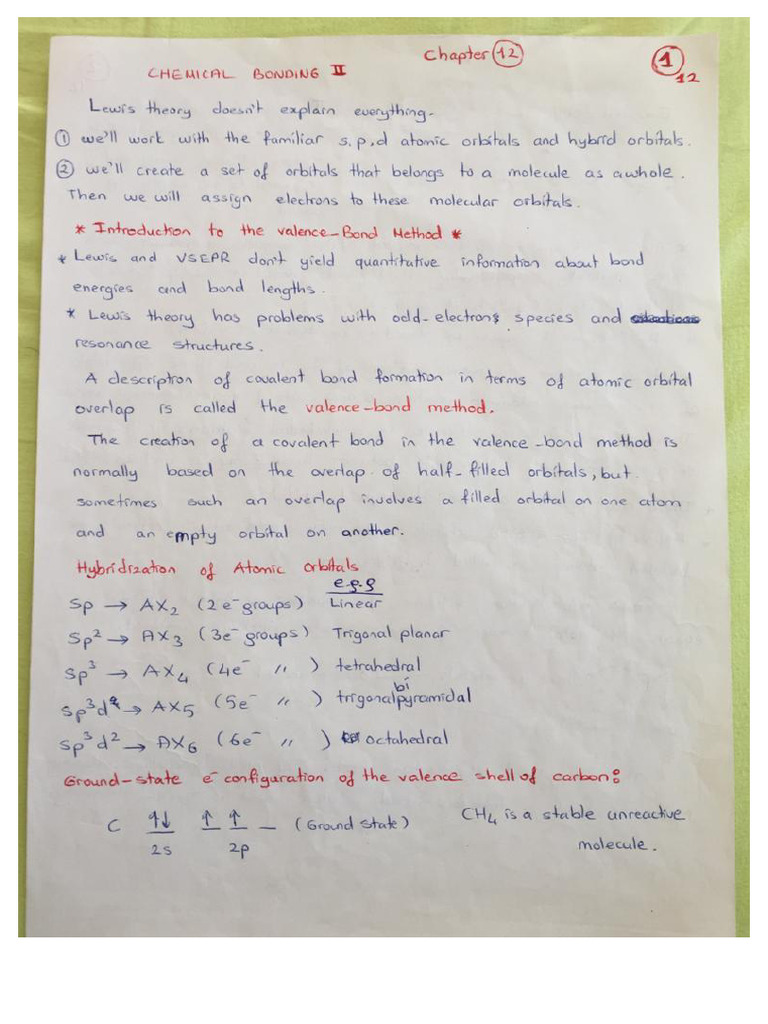 Chapter 12
1
12
CHEMICAL BONDING II
Lewis theory doesn't explain everything.
① we'll work with the familiar s.p,d atomic orbitals and hybrid orbitals.
② we'll create a set of orbitals that belongs to a molecule as a whole.
Then we will assign electrons to these molecular orbitals.
* Introduction to the valence-Bond Method *
* Lewis and VSEPR don't yield quantitative information about bond
energies and bond lengths.
* Lewis theory has problems with odd-electrons species and
resonance structures.
A description of covalent bond formation in terms of atomic orbital
overlap is called the valence-bond method.
The creation of a covalent bond in the valence-bond method is
normally based on the overlap of half-filled orbitals, but
sometimes such an overlap involves a filled orbital on one atom
and an empty orbital on another.
Hybridization of Atomic orbitals
e.g.g
Sp → AX₂ (2e⁻ groups) Linear
Sp² → AX₃ (3e⁻ groups) Trigonal planar
Sp³ → AX₄ (4e⁻ 〃 ) tetrahedral
Sp³d → AX₅ (5e⁻ 〃 ) trigonalbipyramidal
Sp³d² → AX₆ (6e⁻ 〃 ) octahedral
Ground-state e⁻ configuration of the valence shell of carbon:
C ↑↓ ↑ ↑ — (Ground State) CH₄ is a stable unreactive
2s 2p molecule.